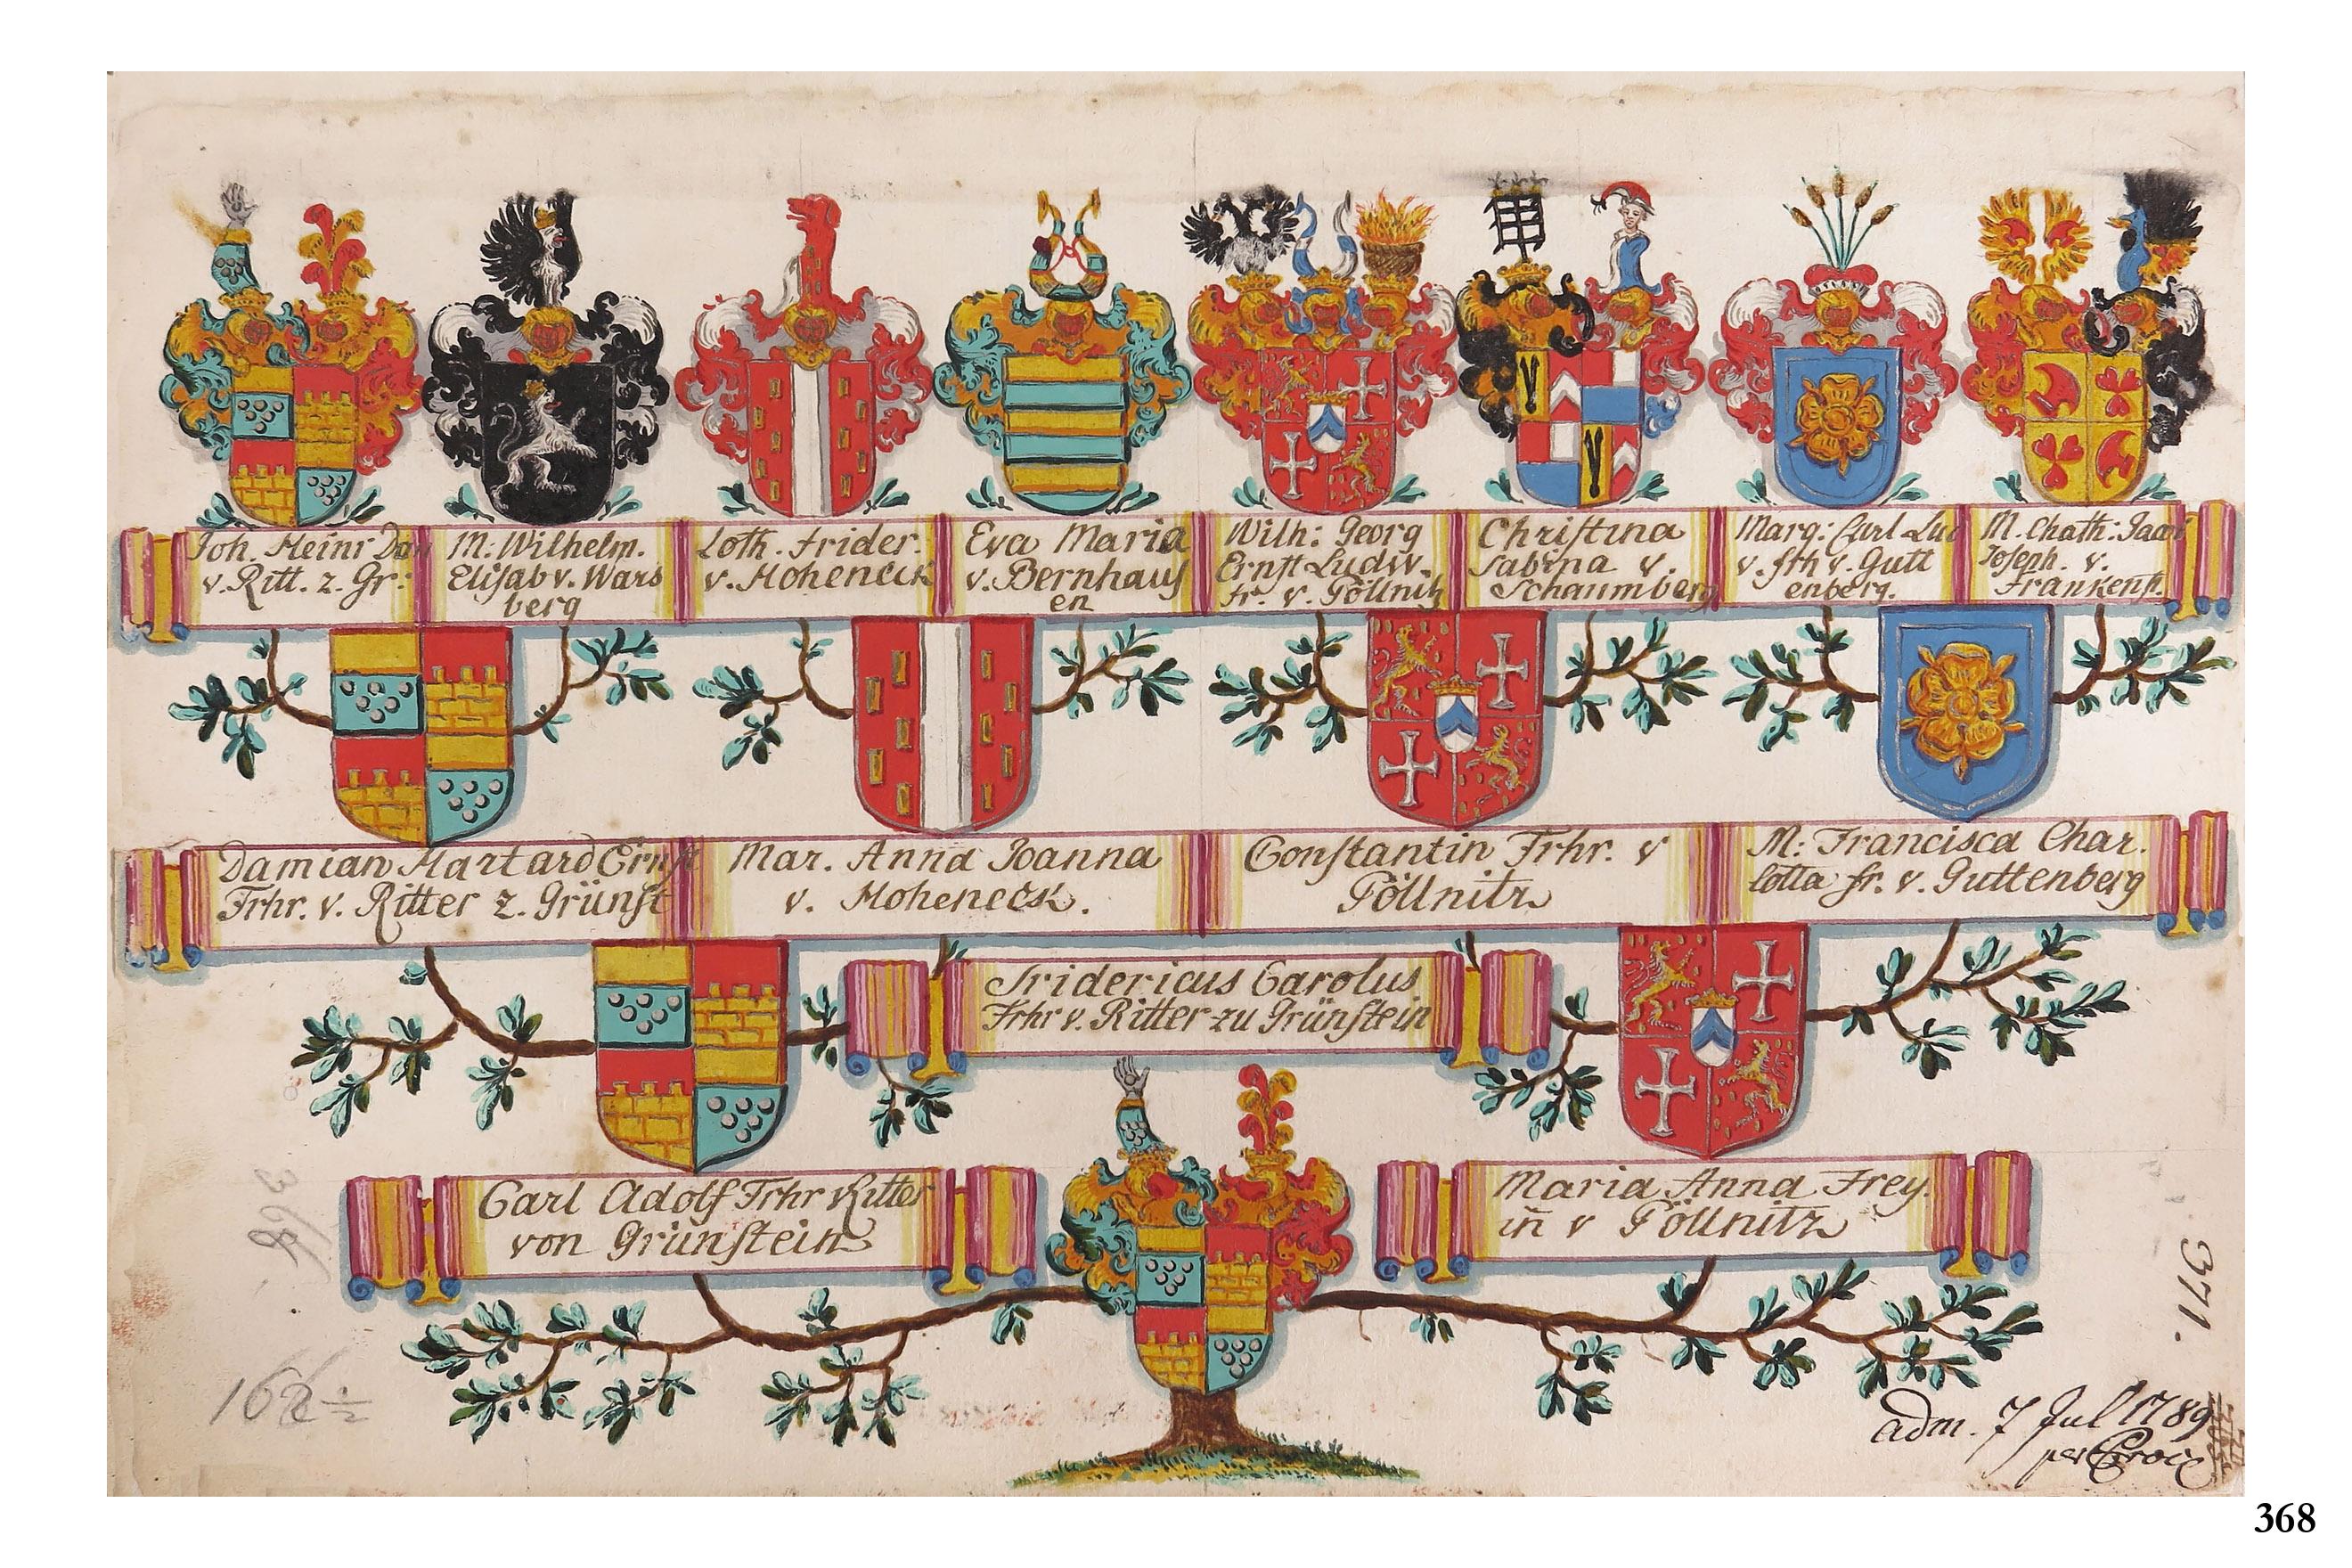 Joh. Heinr Dan
v. Ritt. z. Gr:
M: Wilhelm.
Elisab v. Wars
berg
Loth. Frider.
v. Hoheneck
Eva Maria
v. Bernhaus
en
Wilh: Georg
Ernst Ludw.
fr. v. Pöllnitz
Christina
Sabina v.
Schaumberg
Marq: Carl Lud
v. frh v. Gutt
enberg.
M. Chath:
Joseph. v.
Frankenst.
Damian Hartard Ernst
Frhr. v. Ritter z. Grünst
Mar. Anna Joanna
v. Hoheneck.
Constantin Frhr. v
Pöllnitz
M: Francisca Char.
lotta fr. v. Guttenberg
Fridericus Carolus
Frhr v. Ritter zu Grünstein
Carl Adolf Frhr v Ritter
von Grünstein
Maria Anna Frey.
in v Pöllnitz
368
371.
adm. 7 Jul 1789
per
368